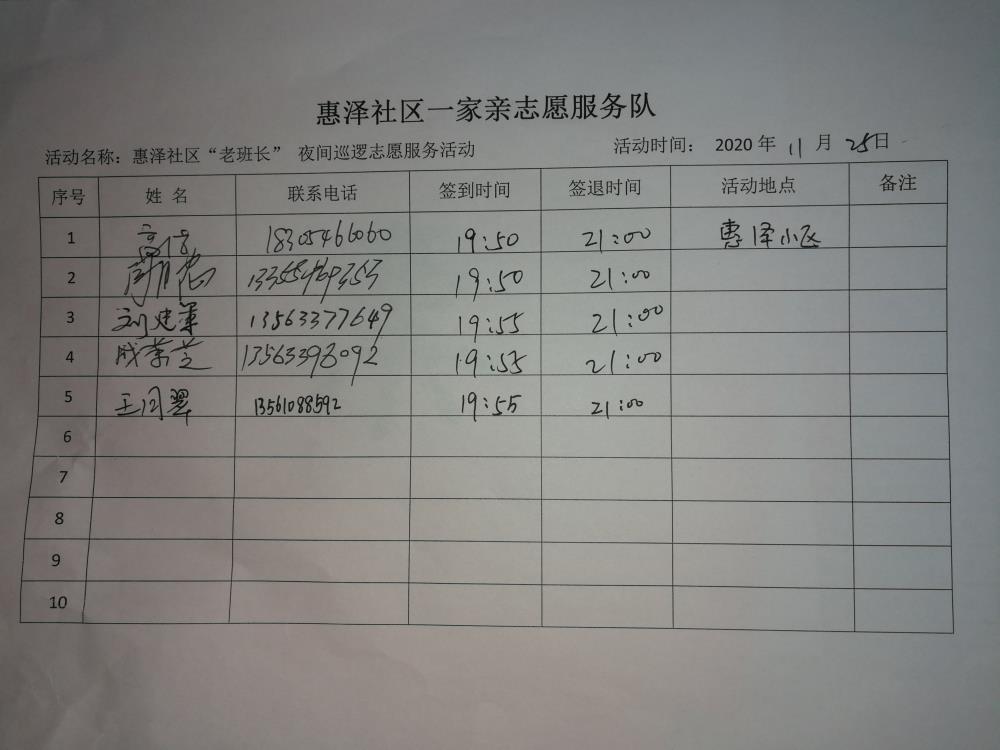 惠泽社区一家亲志愿服务队
活动名称：惠泽社区“老班长” 夜间巡逻志愿服务活动 活动时间： 2020 年 11 月 25日
序号 姓 名 联系电话 签到时间 签退时间 活动地点 备注
1 高信 18305466060 19:50 21:00 惠泽小区
2 13355469353 19:50 21:00
3 刘建军 13563377649 19:55 21:00
4 成荣芝 13563398092 19:55 21:00
5 王同翠 13561088592 19:55 21:00
6
7
8
9
10